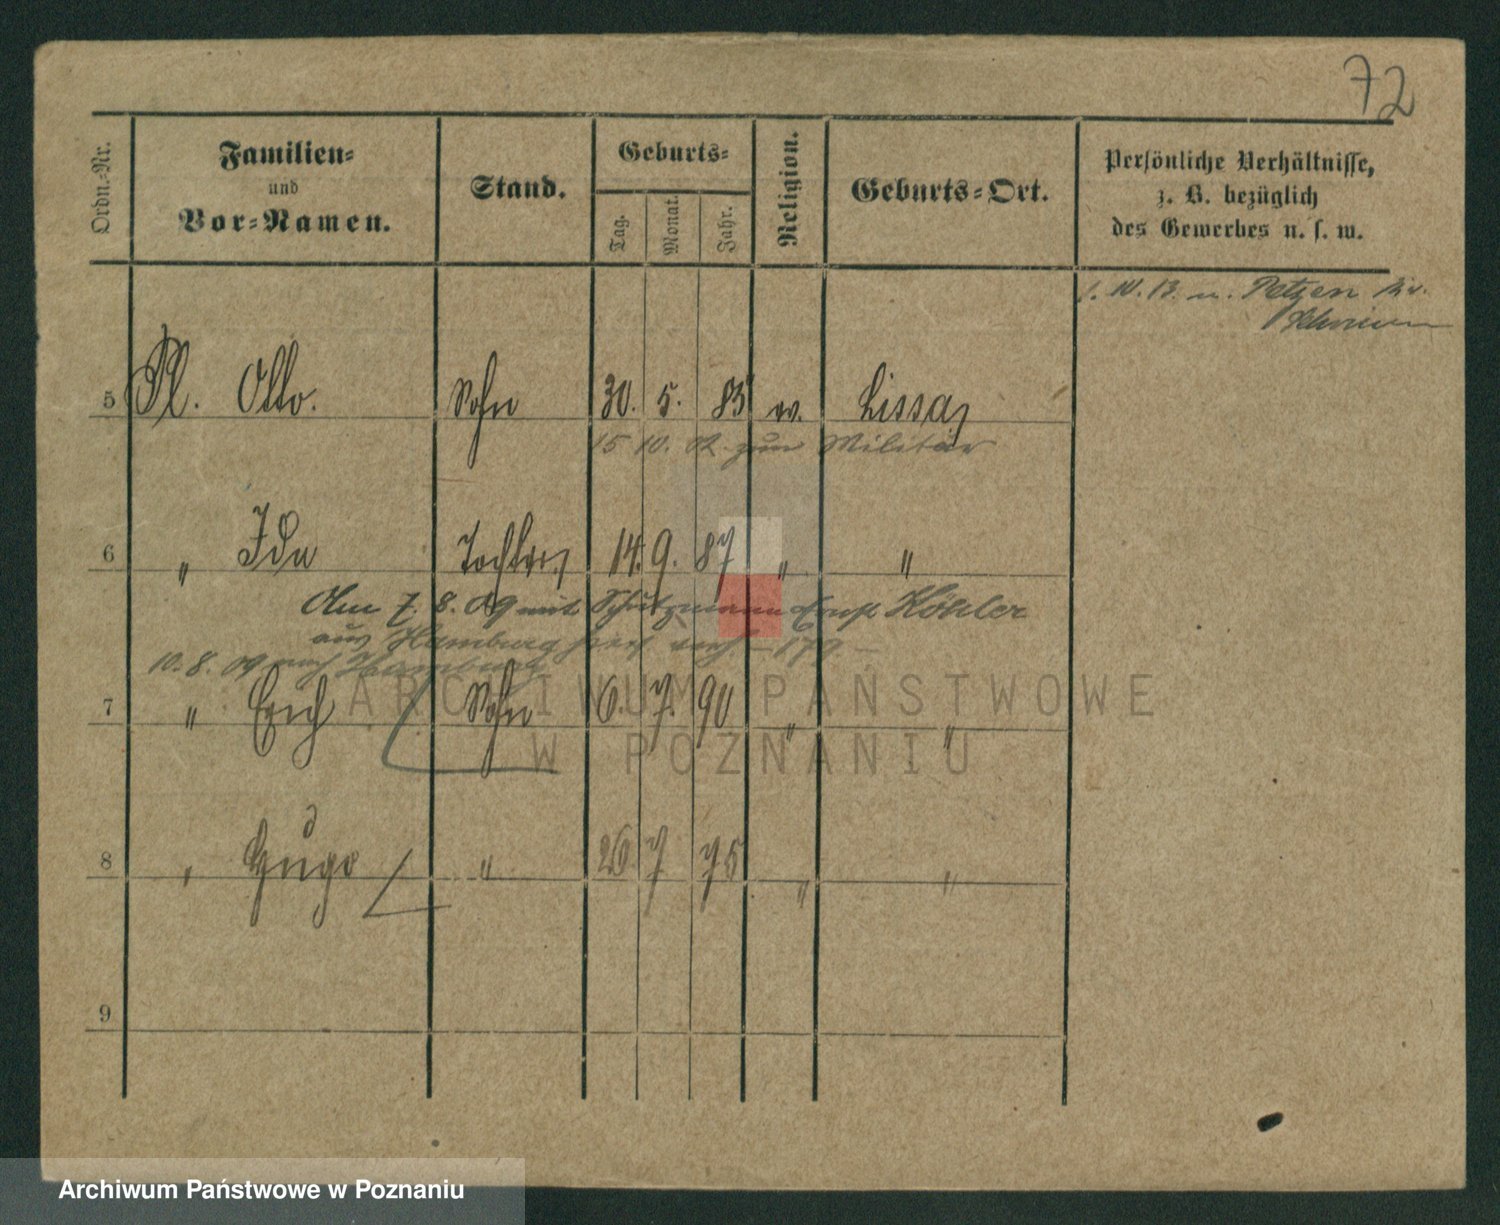 72
Ordn.-Nr.
Familien-
und
Vor-Namen.
Stand.
Geburts-
Tag.
Monat.
Jahr.
Religion.
Geburts-Ort.
Persönliche Verhältnisse,
z. B. bezüglich
des Gewerbes u. s. w.
1. 10. 13. n. Petzen
5 Pl. Otto. Sohn 30. 5. 85 ev. Lissa
15 10. 02. zum Militär
6 " Ida Tochter 14. 9. 87 " "
Am 7. 8. 09 mit Schutzmann Ernst Köhler
aus Hamburg verh. 179
10. 8. 09 nach Hamburg
7 " Erich Sohn 6. 7. 90 " "
8 " Hugo " 26 7 75 " "
9
ARCHIWUM PAŃSTWOWE
W POZNANIU
Archiwum Państwowe w Poznaniu